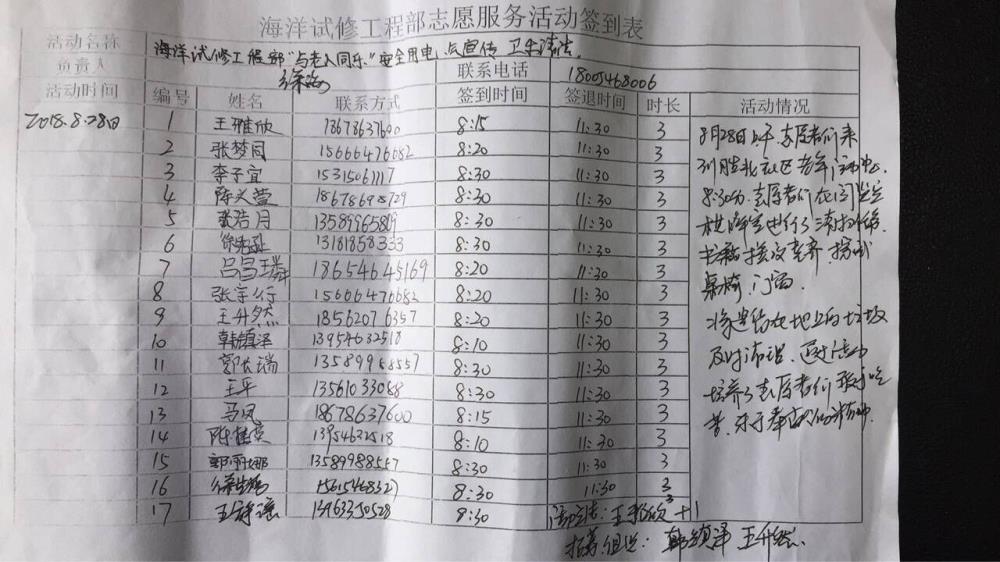 海洋试修工程部志愿服务活动签到表
活动名称 海洋试修工程部"与老人同乐"安全用电 宣传 卫生清洁
负责人 徐 联系电话 18005468006
活动时间 编号 姓名 联系方式 签到时间 签退时间 时长 活动情况
2018.8.28日 1 王雅欣 18678637600 8:15 11:30 3
2 张梦同 15666476682 8:20 11:30 3
3 李子宜 15315061117 8:30 11:30 3
4 陈义萱 18678698729 8:30 11:30 3
5 张若月 13589965809 8:30 11:30 3
6 徐 13181858333 8:30 11:30 3
7 吕昌 18654645169 8:20 11:30 3
8 张宇行 15666476682 8:20 11:30 3
9 王升然 18562076357 8:20 11:30 3
10 韩镇泽 13954632518 8:10 11:30 3
11 郭长瑞 13589988557 8:30 11:30 3
12 王平 13561033088 8:30 11:30 3
13 马凤 18678637600 8:15 11:30 3
14 陈桂英 13954632518 8:10 11:30 3
15 郭丽娜 13589988557 8:30 11:30 3
16 徐 15615468329 8:30 11:30 3
17 王静谣 13963350528 8:30 3
8月28日上午,志愿者们来
到胜利社区老年活动中心.
8:30分.志愿者们在阅览室
棋牌室进行了清扫
书籍 擦拭
桌椅、门窗.
将遗留在地上的垃圾
及时清理.
培养了志愿者们 吃
苦、乐于奉献的精神.
王雅欣 +1
招募组织: 韩镇泽 王升然.